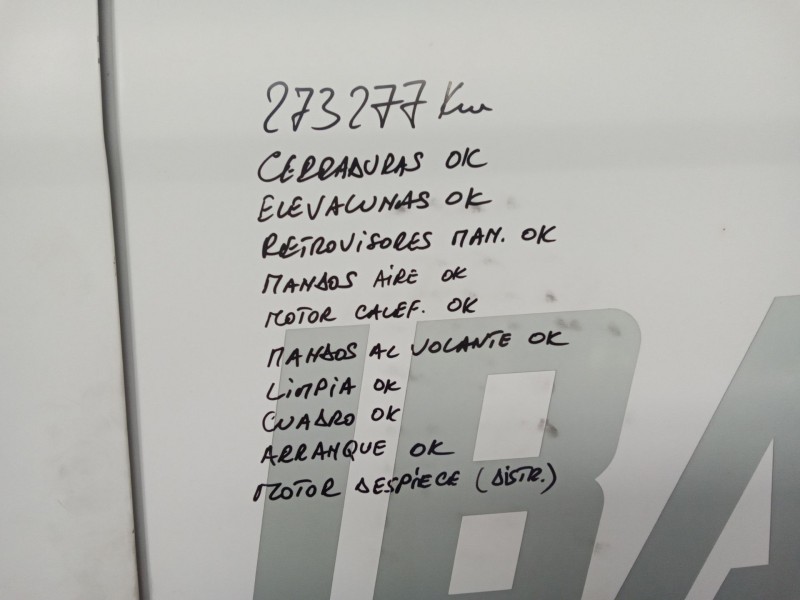 273277 Km
CERRADURAS OK
ELEVALUNAS OK
RETROVISORES MAN. OK
MANDOS AIRE OK
MOTOR CALEF. OK
MANDOS AL VOLANTE OK
LIMPIA OK
CUADRO OK
ARRANQUE OK
MOTOR DESPIECE (DISTR.)
IBA